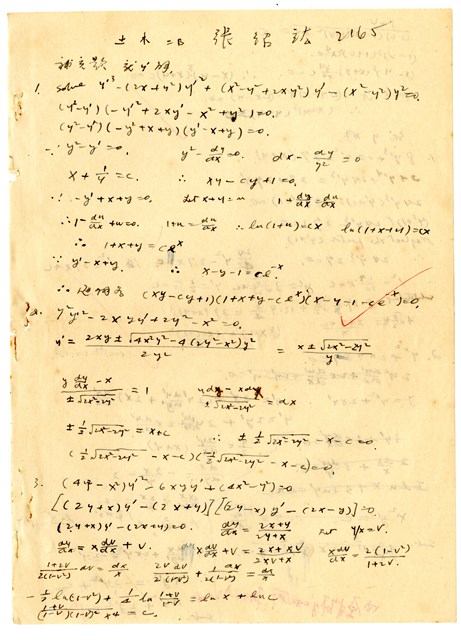 土木二B 張紹 2165
補充題 求y'解
1. solve y'³-(2x+y²)y'²+(x²-y²+2xy²)y'-(x²-y²)y²=0.
(y²-y')(-y'²+2xy'-x²+y²)=0.
(y²-y')(-y'+x+y)(y'-x+y)=0.
∵ y²-y'=0. y²-dy/dx=0. dx-dy/y²=0
x+1/y=c. ∴ xy-cy+1=0.
∵ -y'+x+y=0. Let x+y=u 1+dy/dx=du/dx
∴ 1-du/dx+u=0. 1+u=du/dx ∴ ln(1+u)=cx ln(1+x+y)=cx
∴ 1+x+y=ceˣ
∵ y'-x+y. ∴ x-y-1=ce⁻ˣ
∴ (xy-cy+1)(1+x+y-ceˣ)(x-y-1-ce⁻ˣ)=0.
2. y²y'²-2xyy'+2y²-x²=0.
y'=(2xy±√(4x²y²-4(2y²-x²)y²))/2y² = (x±√(2x²-2y²))/y
(y dy/dx-x)/(±√(2x²-2y²))=1 (ydy-xdx)/(±√(2x²-2y²))=dx
±½√(2x²-2y²)=x+c ∴ ±½√(2x²-2y²)-x-c=0.
(½√(2x²-2y²)-x-c)(-½√(2x²-2y²)-x-c)=0.
3. (4y²-x²)y'²-6xyy'+(4x²-y²)=0
[(2y+x)y'-(2x+y)][(2y-x)y'-(2x-y)]=0
(2y+x)y'-(2x+y)=0. dy/dx=(2x+y)/(2y+x) Let y/x=v.
dy/dx=x dv/dx+v. x dv/dx+v=(2x+xv)/(2xv+x) x dv/dx=2(1-v²)/(1+2v).
(1+2v)/(2(1-v²)) dv=dx/x 2v dv/(2(1-v²))+1/(2(1-v²))=dx/x
-½ln(1-v²)+¼ln (1+v)/(1-v)=ln x+ln c
(1+v)/((1-v)(1-v²)²x⁴)=c.